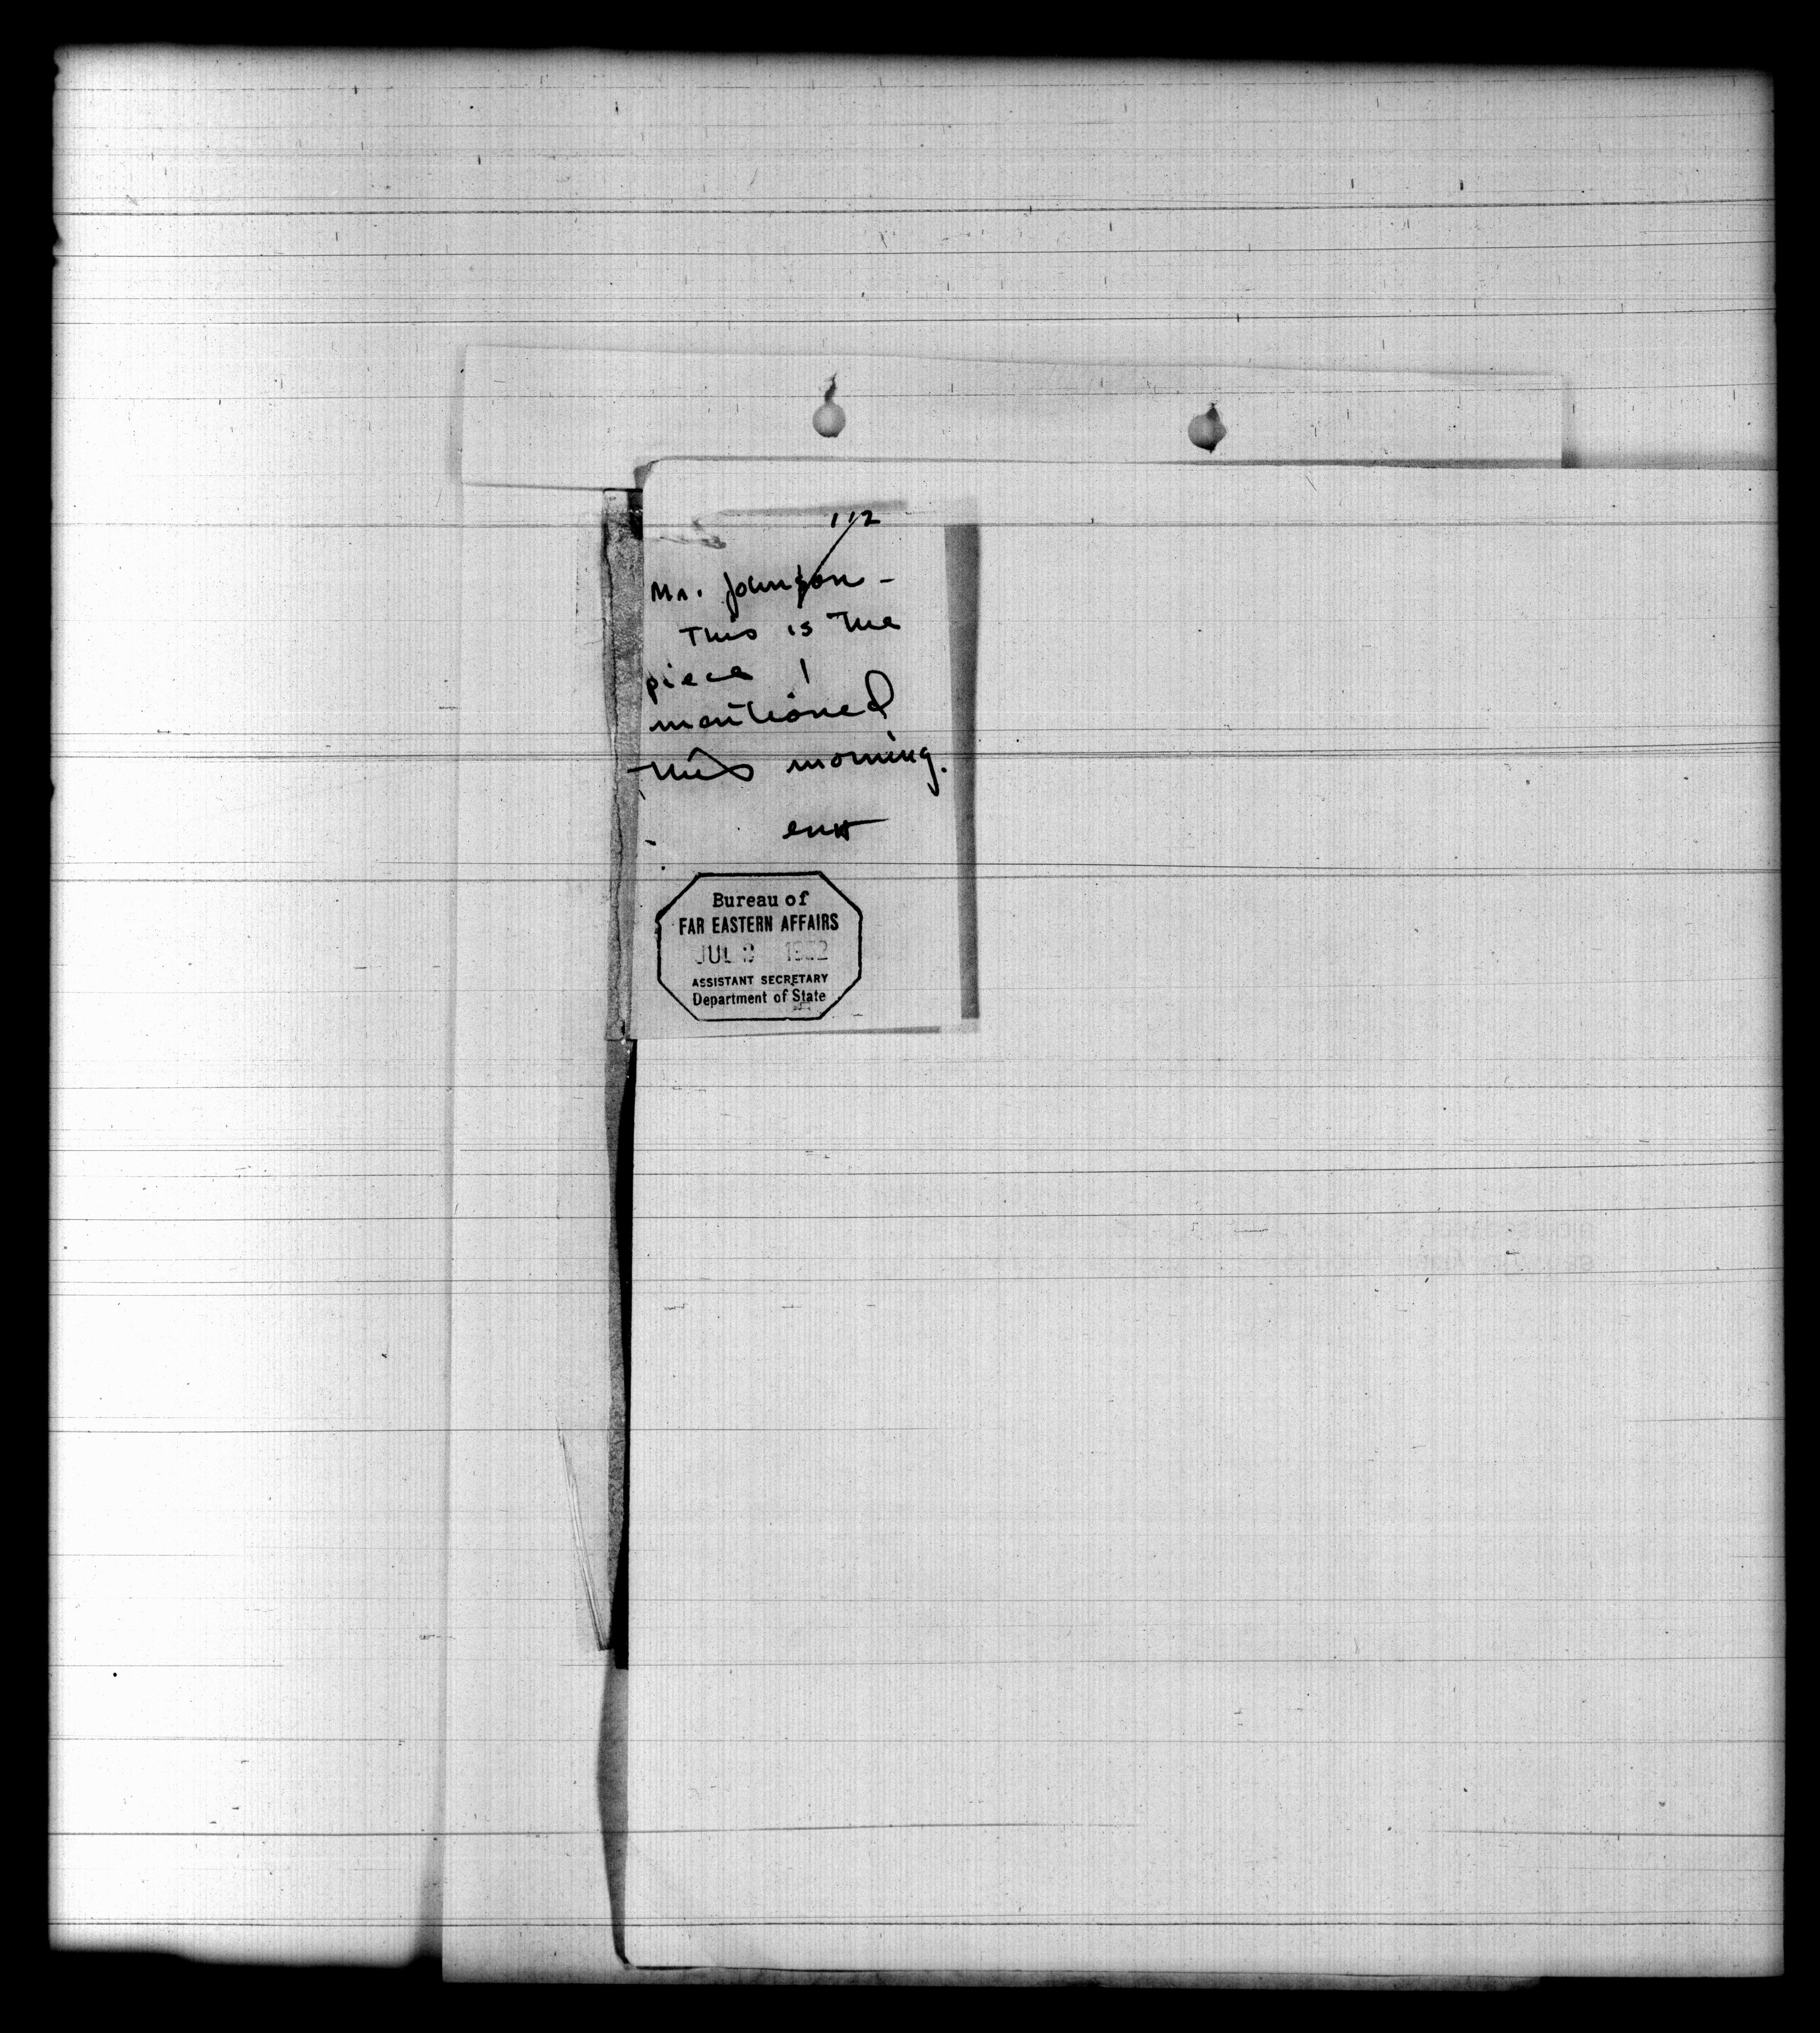 112
Mr. Johnson -
This is the
piece I
mentioned
this morning.
Bureau of
FAR EASTERN AFFAIRS
JUL 1952
ASSISTANT SECRETARY
Department of State